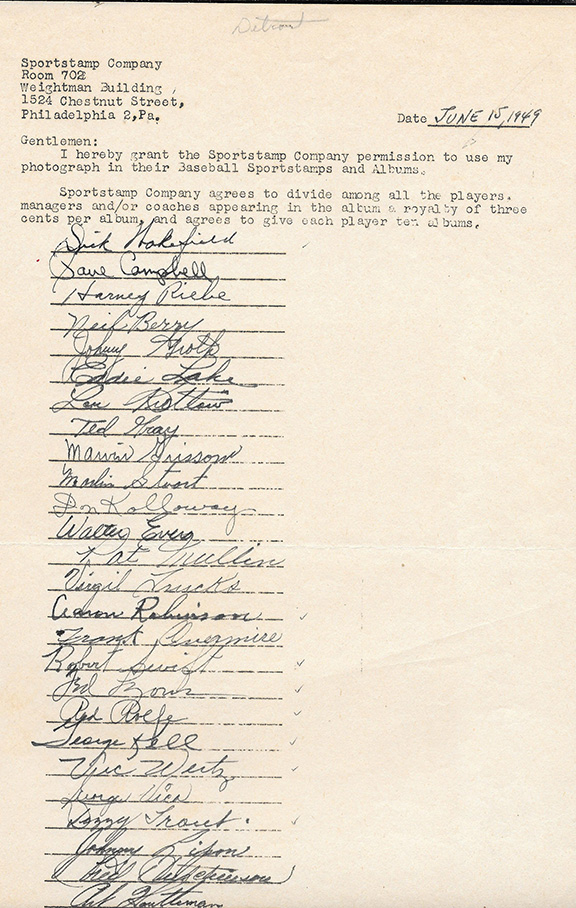 Detroit
Sportstamp Company
Room 702
Weightman Building ,
1524 Chestnut Street,
Philadelphia 2,Pa.
Date JUNE 15, 1949
Gentlemen:
I hereby grant the Sportstamp Company permission to use my
photograph in their Baseball Sportstamps and Albums.
Sportstamp Company agrees to divide among all the players,
managers and/or coaches appearing in the album a royalty of three
cents per album, and agrees to give each player ten albums.
Dick Wakefield
Dave Campbell
Harvey Riebe
Neil Berry
Johnny Groth
Eddie Lake
Ted Gray
Marvin Grissom
Marlin Stuart
Don Kolloway
Walter Evers
Pat Mullin
Virgil Trucks
Aaron Robinson
Frank Overmire
Robert Swift
Red Rolfe
George Kell
Vic Wertz
George Vico
Dizzy Trout
Johnny Lipon
Fred Hutchinson
Art Houtteman